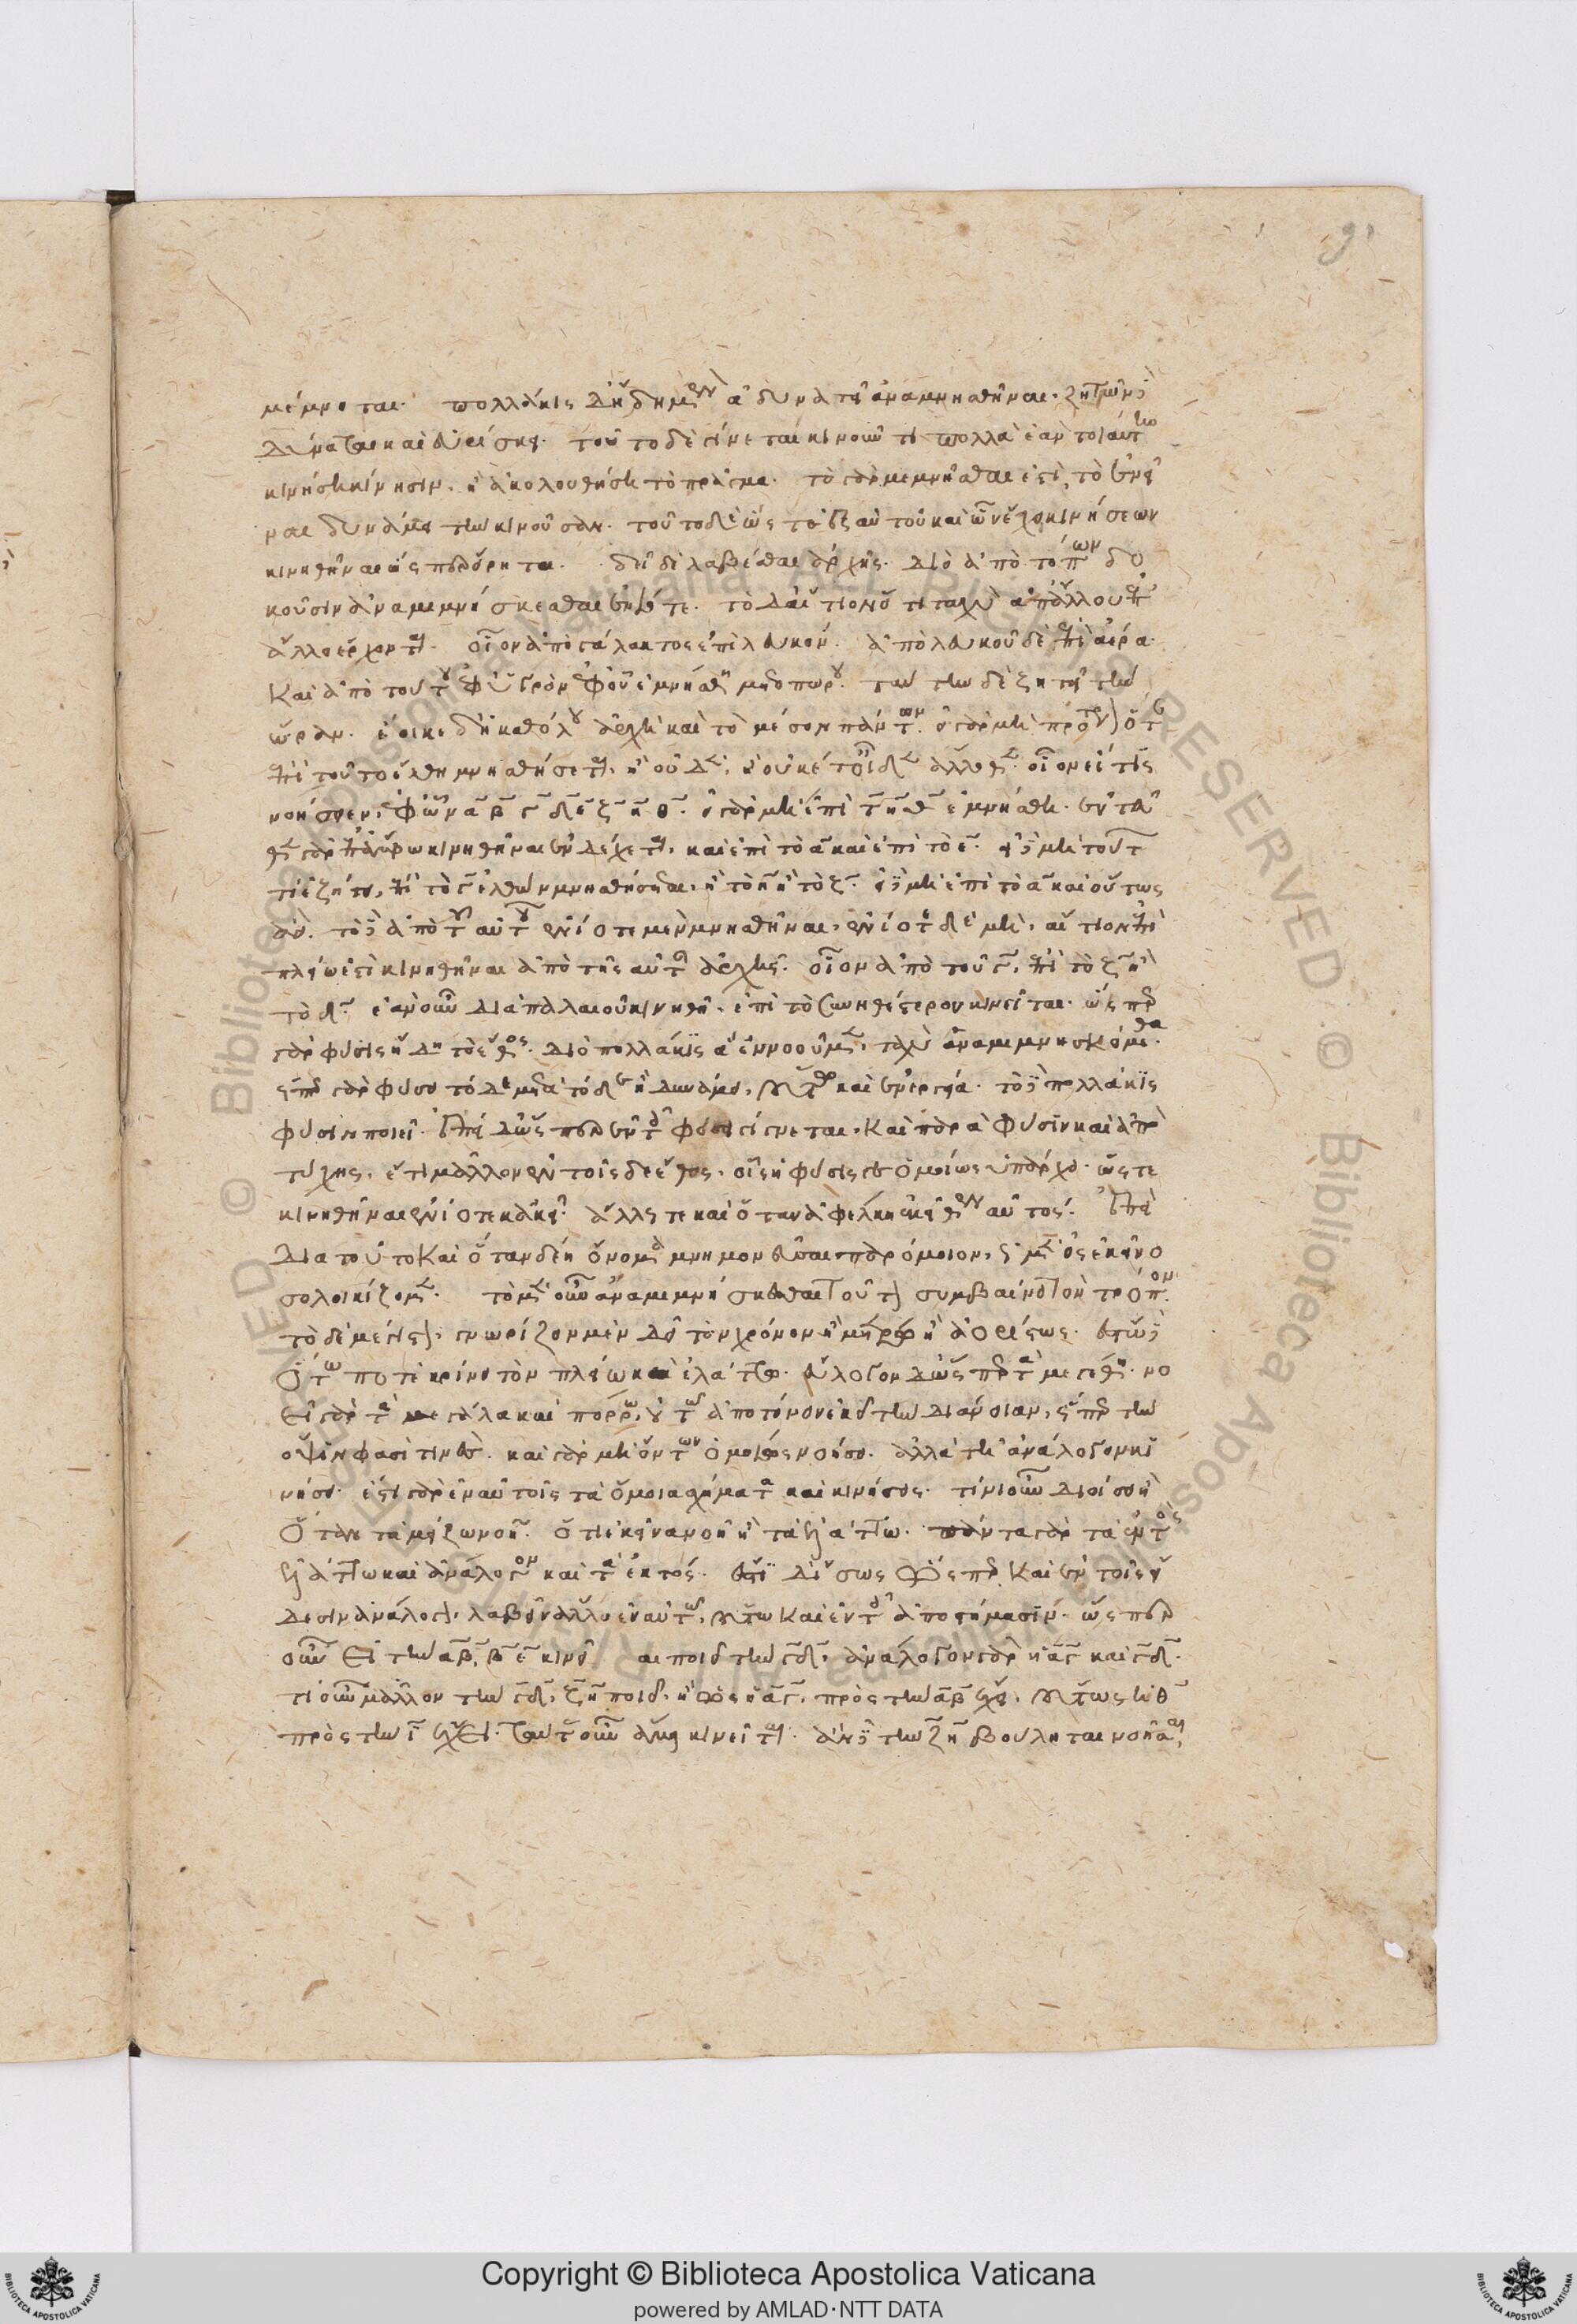 91
μέμνηται. πολλάκις δ' ἤδη μὲν ἀδυνατεῖ ἀναμνησθῆναι. ζητῶν δὲ
δύναται καὶ εὑρίσκει. τοῦτο δὲ γίνεται κινοῦντι πολλὰ ἐὰν τοιαύτην
κινήσῃ κίνησιν, ᾗ ἀκολουθήσῃ τὸ πρᾶγμα. τὸ γὰρ μεμνῆσθαι ἐστὶ, τὸ ἐνεῖ
ναι δυνάμει τὴν κινοῦσαν. τοῦτο δὲ ὡς τε ἐξ αὑτοῦ καὶ ὧν ἔχει κινήσεων
κινηθῆναι ὥσπερ εἴρηται. δεῖ δὲ λαβέσθαι ἀρχῆς. διὸ ἀπὸ τόπων δο
κοῦσιν ἀναμιμνήσκεσθαι ἐνίοτε. τὸ δ' αἴτιον ὅτι ταχὺ ἀπ' ἄλλου ἐπ'
ἄλλο ἔρχονται. οἷον ἀπὸ γάλακτος ἐπὶ λευκόν. ἀπὸ λευκοῦ δὲ ἐπὶ ἀέρα.
καὶ ἀπὸ τούτου ἐφ' ὑγρὸν ἀφ' οὗ ἐμνήσθη μετοπώρου. ταύτην δὲ ζητεῖ τὴν
ὥραν. ἔοικε δὴ καθόλου ἀρχὴ καὶ τὸ μέσον πάντων. εἰ γὰρ μὴ πρότερον ὅταν
ἐπὶ τοῦτο ἔλθῃ μνησθήσεται, ἢ οὐδὲ, οὐκέτι οὐδὲ ἄλλοθεν. οἷον εἴ τις
νοήσειεν, ἐφ' ὧν α β γ δ ε ζ η θ. εἰ γὰρ μὴ ἐπὶ τ η θ ἐμνήσθη. ἐντεῦ
θεν γὰρ ἐπ' ἄμφω κινηθῆναι ἐνδέχεται, καὶ ἐπὶ τὸ δ καὶ ἐπὶ τὸ ε. εἰ δὲ μὴ τούτ
τι ἐζήτει, ἐπὶ τὸ γ ἐλθὼν μνησθήσεται, ἢ τὸ η ἢ τὸ ζ. εἰ δὲ μὴ ἐπὶ τὸ α καὶ οὕτως
ἀεί. τοῦ δὲ ἀπὸ τοῦ αὐτοῦ ἐνίοτε μὲν μνησθῆναι, ἐνίοτε δὲ μὴ, αἴτιον ὅτι ἐπὶ
πλείω ἐστὶ κινηθῆναι ἀπὸ τῆς αὐτῆς ἀρχῆς. οἷον ἀπὸ τοῦ γ, ἐπὶ τὸ ζ ἢ
τὸ δ. ἐὰν οὖν διὰ παλαιοῦ κινηθῇ, ἐπὶ τὸ συνηθέστερον κινεῖται. ὥσπερ
γὰρ φύσις ἤδη τὸ ἔθος. διὸ πολλάκις ἃ ἐννοοῦμεν, ταχὺ ἀναμιμνησκόμεθα.
ὥσπερ γὰρ φύσει τόδε μετὰ τόδε ἐστὶν, οὕτω καὶ ἐνεργείᾳ. τὸ δὲ πολλάκις
φύσιν ποιεῖ. ἐπεὶ δ' ὥσπερ ἐν τοῖς φύσει γίγνεται, καὶ παρὰ φύσιν καὶ ἀπὸ
τύχης, ἔτι μᾶλλον ἐν τοῖς δι' ἔθος, οἷς ἡ φύσις γε μὴ ὁμοίως ὑπάρχει. ὥστε
κινηθῆναι ἐνίοτε κἀκεῖ. ἄλλως τε καὶ ὅταν ἀφέλκῃ ἐκεῖθεν αὐτός. ἐπεὶ
διὰ τοῦτο καὶ ὅταν δέῃ ὄνομα μνημονεῦσαι παρόμοιον, ἴσμεν εἰς ἐκεῖνο
σολοικίζομεν. τὸ μὲν οὖν ἀναμιμνήσκεσθαι τοῦτον συμβαίνει τὸν τρόπον.
τὸ δὲ μέγιστον, γνωρίζειν μὲν δεῖ τὸν χρόνον ἢ μέτρῳ ἢ ἀορίστως. ἔστω δὲ
ὅτῳ ποτὲ κρίνει τὸν πλείω καὶ ἐλάττω. εὔλογον δ' ὥσπερ τὰ μεγέθη. νο
εῖ γὰρ τὰ μεγάλα καὶ πόρρω, οὐ τῷ ἀποτείνειν ἐκεῖ τὴν διάνοιαν, ὥσπερ τὴν
ὄψιν φασί τινες. καὶ γὰρ μὴ ὄντων ὁμοίως νοήσει. ἀλλὰ τῇ ἀνάλογον κι
νήσει. ἔστι γὰρ ἐν αὐτοῖς τὰ ὅμοια σχήματα καὶ κινήσεις. τίνι οὖν διοίσει ἢ
ὅταν τὰ μείζω νοῇ. ὅτι ἐκεῖνα νοῇ ἢ τὰ ἐλάττω. πάντα γὰρ τὰ ἐντὸς
ἐλάττω καὶ ἀνάλογον καὶ τὰ ἐκτός. ἔστι δ' ἴσως ὥσπερ καὶ ἐν τοῖς εἴ
δεσιν ἀνάλογον, λαβεῖν ἄλλο ἐν αὑτῷ, οὕτω καὶ ἐν τοῖς ἀποστήμασιν. ὥσπερ
οὖν εἰ τὴν αβ, βε κινεῖ αι ποιεῖ τὴν γδ, ἀνάλογον γὰρ ἡ αγ καὶ γδ.
τί οὖν μᾶλλον τὴν γδ, ζη ποιεῖ, ἢ ὡς ἡ αγ, πρὸς τὴν αβ ἔχει, οὕτως ἡ θ
πρὸς τὴν ι ἔχει. ταύτας οὖν ἅμα κινεῖται. ἂν δὲ τὴν ζη βούληται νοῆσαι,